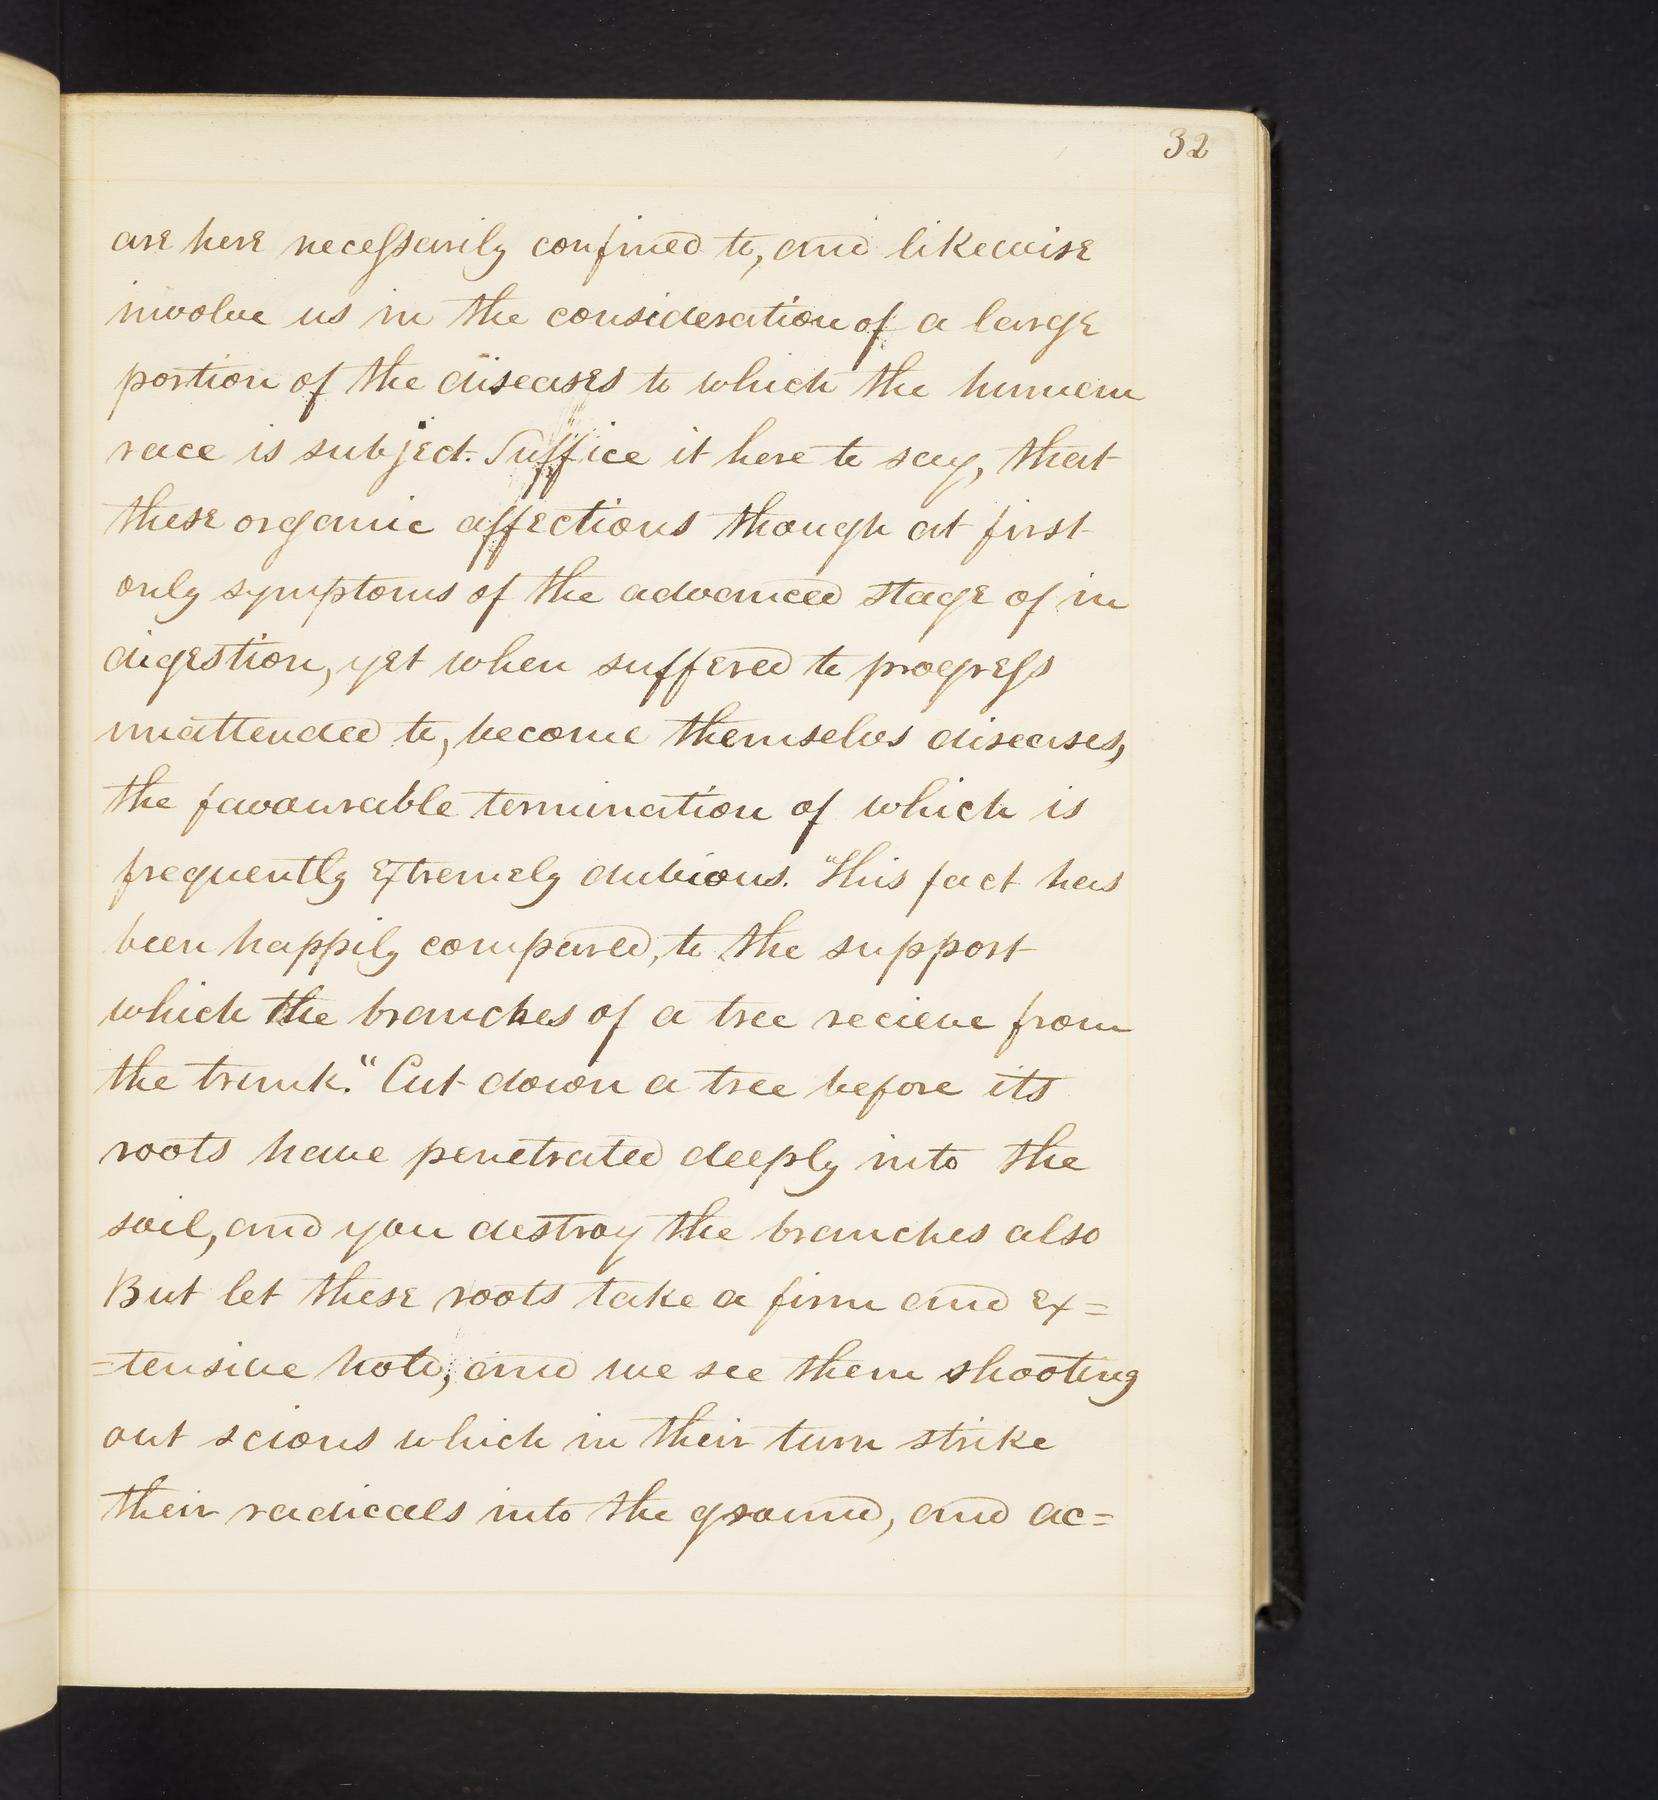 32
are here necessarily confined to, and likewise
involve us in the consideration of a large
portion of the diseases to which the human
race is subject. Suffice it here to say, that
these organic affections though at first
only symptoms of the advanced stage of in
digestion, yet when suffered to progress
unattended to, become themselves diseases,
the favourable termination of which is
frequently extremely dubious. "This fact has
been happily compared, to the support
which the branches of a tree recieve from
the trunk." Cut down a tree before its
roots have penetrated deeply into the
soil, and you destroy the branches also
But let these roots take a firm and ex=
=tensive hold, and we see them shooting
out scions which in their turn strike
their radicals into the ground, and ac=